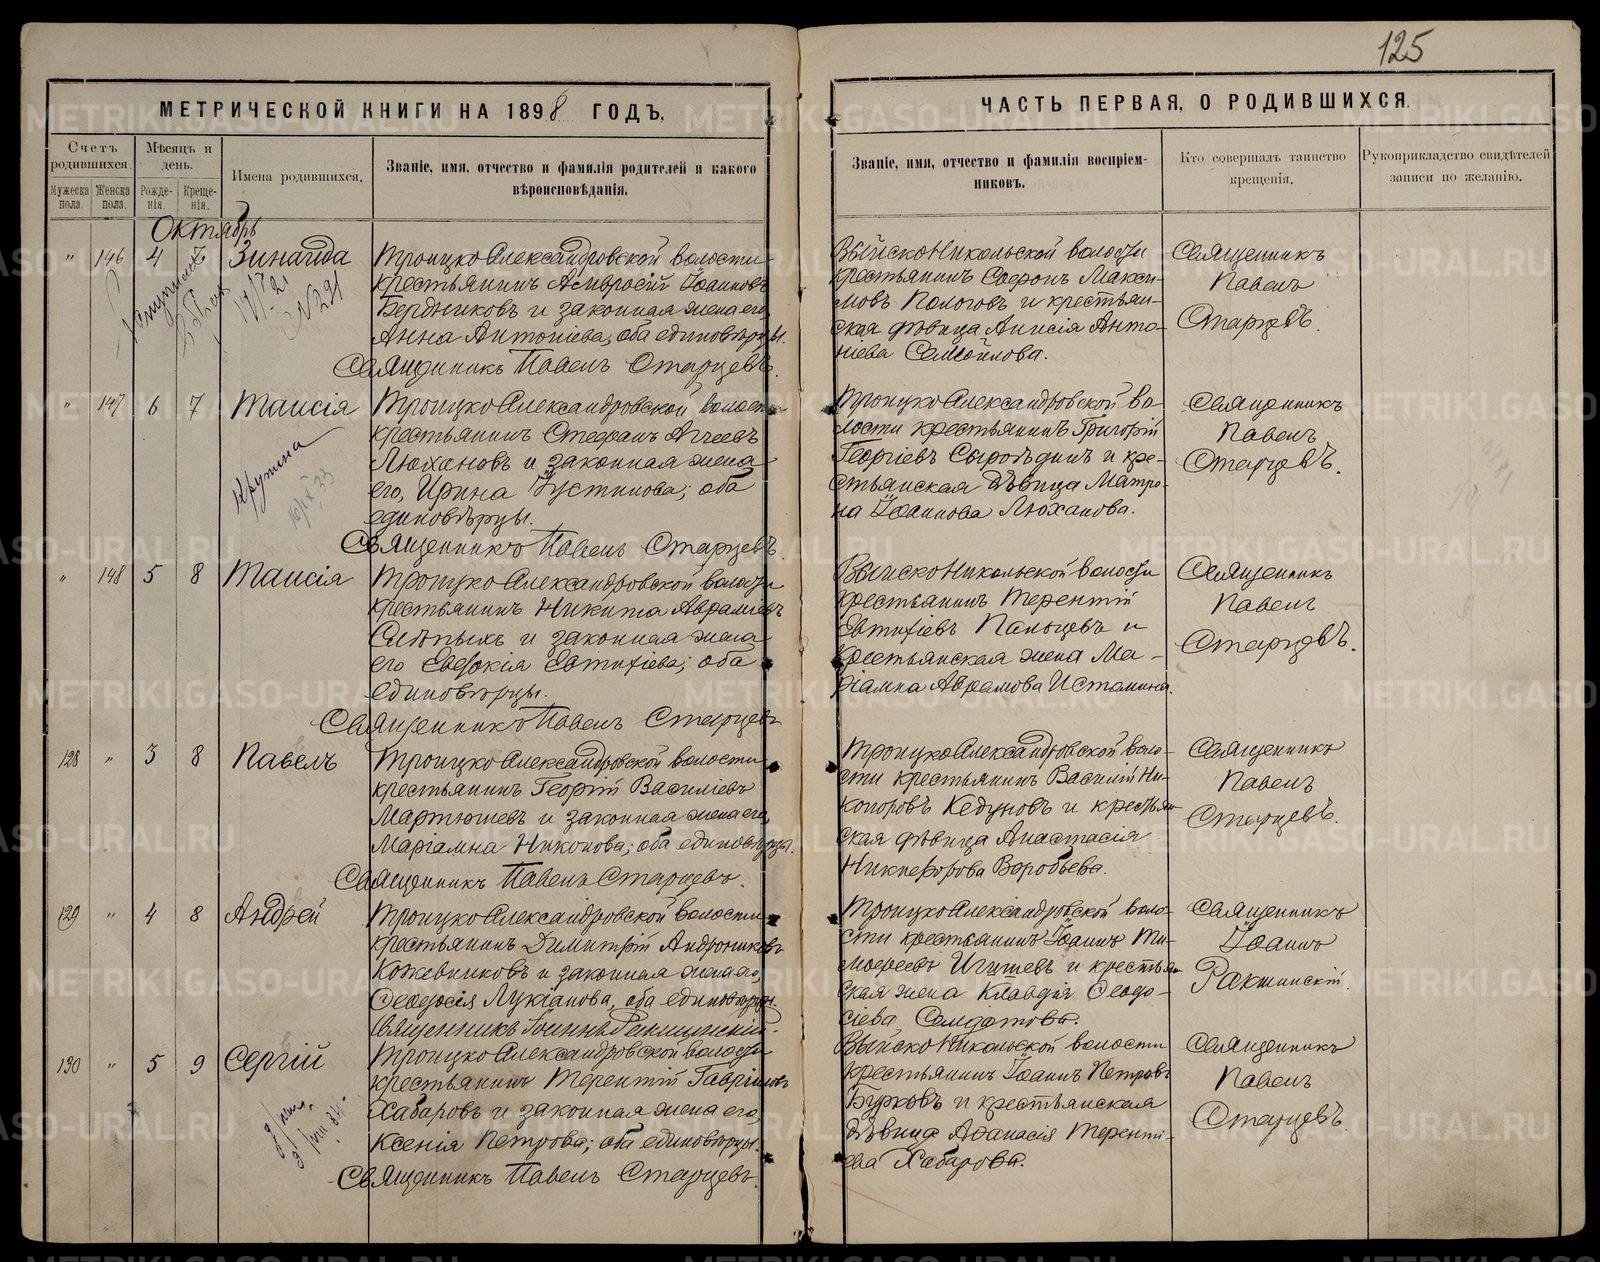 125
МЕТРИЧЕСКОЙ КНИГИ НА 1898 ГОДЪ.
Счетъ родившихся.
Мужеска пола.
Женска пола.
Мѣсяцъ и день.
Рожде-
нія.
Креще-
нія.
Имена родившихся.
Званіе, имя, отчество и фамилія родителей и какого
вѣроисповѣданія.
Октябрь
" 146 4 6 Зинаида
Троицко Александровской волости
крестьянинъ Амвросій Іоанновъ
Бердниковъ и законная жена его,
Анна Антоніева, оба единовѣрцы.
Священникъ Павелъ Старцевъ.
" 147 6 7 Таисія
Троицко Александровской волости
крестьянинъ Стефанъ Агчеевъ
Люхановъ и законная жена
его, Ирина Іустинова; оба
единовѣрцы.
Священникъ Павелъ Старцевъ.
" 148 5 8 Таисія
Троицко Александровской волости
крестьянинъ Никита Авраміевъ
Слѣпыхъ и законная жена
его Евдокія Евтихіева; оба
единовѣрцы.
Священникъ Павелъ Старцевъ
128 " 3 8 Павелъ
Троицко Александровской волости
крестьянинъ Георгій Василіевъ
Мартюшевъ и законная жена его,
Маріамна Никонова; оба единовѣрцы.
Священникъ Павелъ Старцевъ.
129 " 4 8 Андрей
Троицко Александровской волости
крестьянинъ Димитрій Андрониковъ
Кожевниковъ и законная жена его,
Феодосія Лукіанова, оба единовѣрцы
Священникъ Іоаннъ Ракшинскій.
130 " 5 9 Сергій
Троицко Александровской волости
крестьянинъ Терентій Гавріиловъ
Хабаровъ и законная жена его,
Ксенія Петрова; оба единовѣрцы.
Священникъ Павелъ Старцевъ.
ЧАСТЬ ПЕРВАЯ, О РОДИВШИХСЯ.
Званіе, имя, отчество и фамилія воспріем-
никовъ.
Кто совершалъ таинство
крещенія.
Рукоприкладство свидѣтелей
записи по желанію.
Выйско Никольской волости
крестьянинъ Софонъ Макси-
мовъ Пологовъ и крестьян-
ская дѣвица Анисія Анто-
ніева Самойлова.
Священникъ
Павелъ
Старцевъ.
Троицко Александровской во-
лости крестьянинъ Григорій
Георгіевъ Сыроѣдинъ и кре-
стьянская дѣвица Матро-
на Іоаннова Люханова.
Священникъ
Павелъ
Старцевъ.
Выйско Никольской волости
крестьянинъ Терентій
Евтихіевъ Пальцевъ и
крестьянская жена Ма-
ріамна Абрамова Истомина.
Священникъ
Павелъ
Старцевъ.
Троицко Александровской воло-
сти крестьянинъ Василій Ни-
коноровъ Кедуновъ и крестьян-
ская дѣвица Анастасія
Никифорова Воробьева.
Священникъ
Павелъ
Старцевъ.
Троицко Александровской воло-
сти крестьянинъ Іоаннъ Ти-
мофеевъ Игишевъ и крестьян-
ская жена Клавдія Феодо-
сіева Солдатова.
Священникъ
Іоаннъ
Ракшинскій.
Выйско Никольской волости
крестьянинъ Іоаннъ Петровъ
Бурковъ и крестьянская
дѣвица Афанасія Теренті-
ева Хабарова.
Священникъ
Павелъ
Старцевъ.
Крутина
16/IX 33
№ 291
METRIKI.GASO-URAL.RU